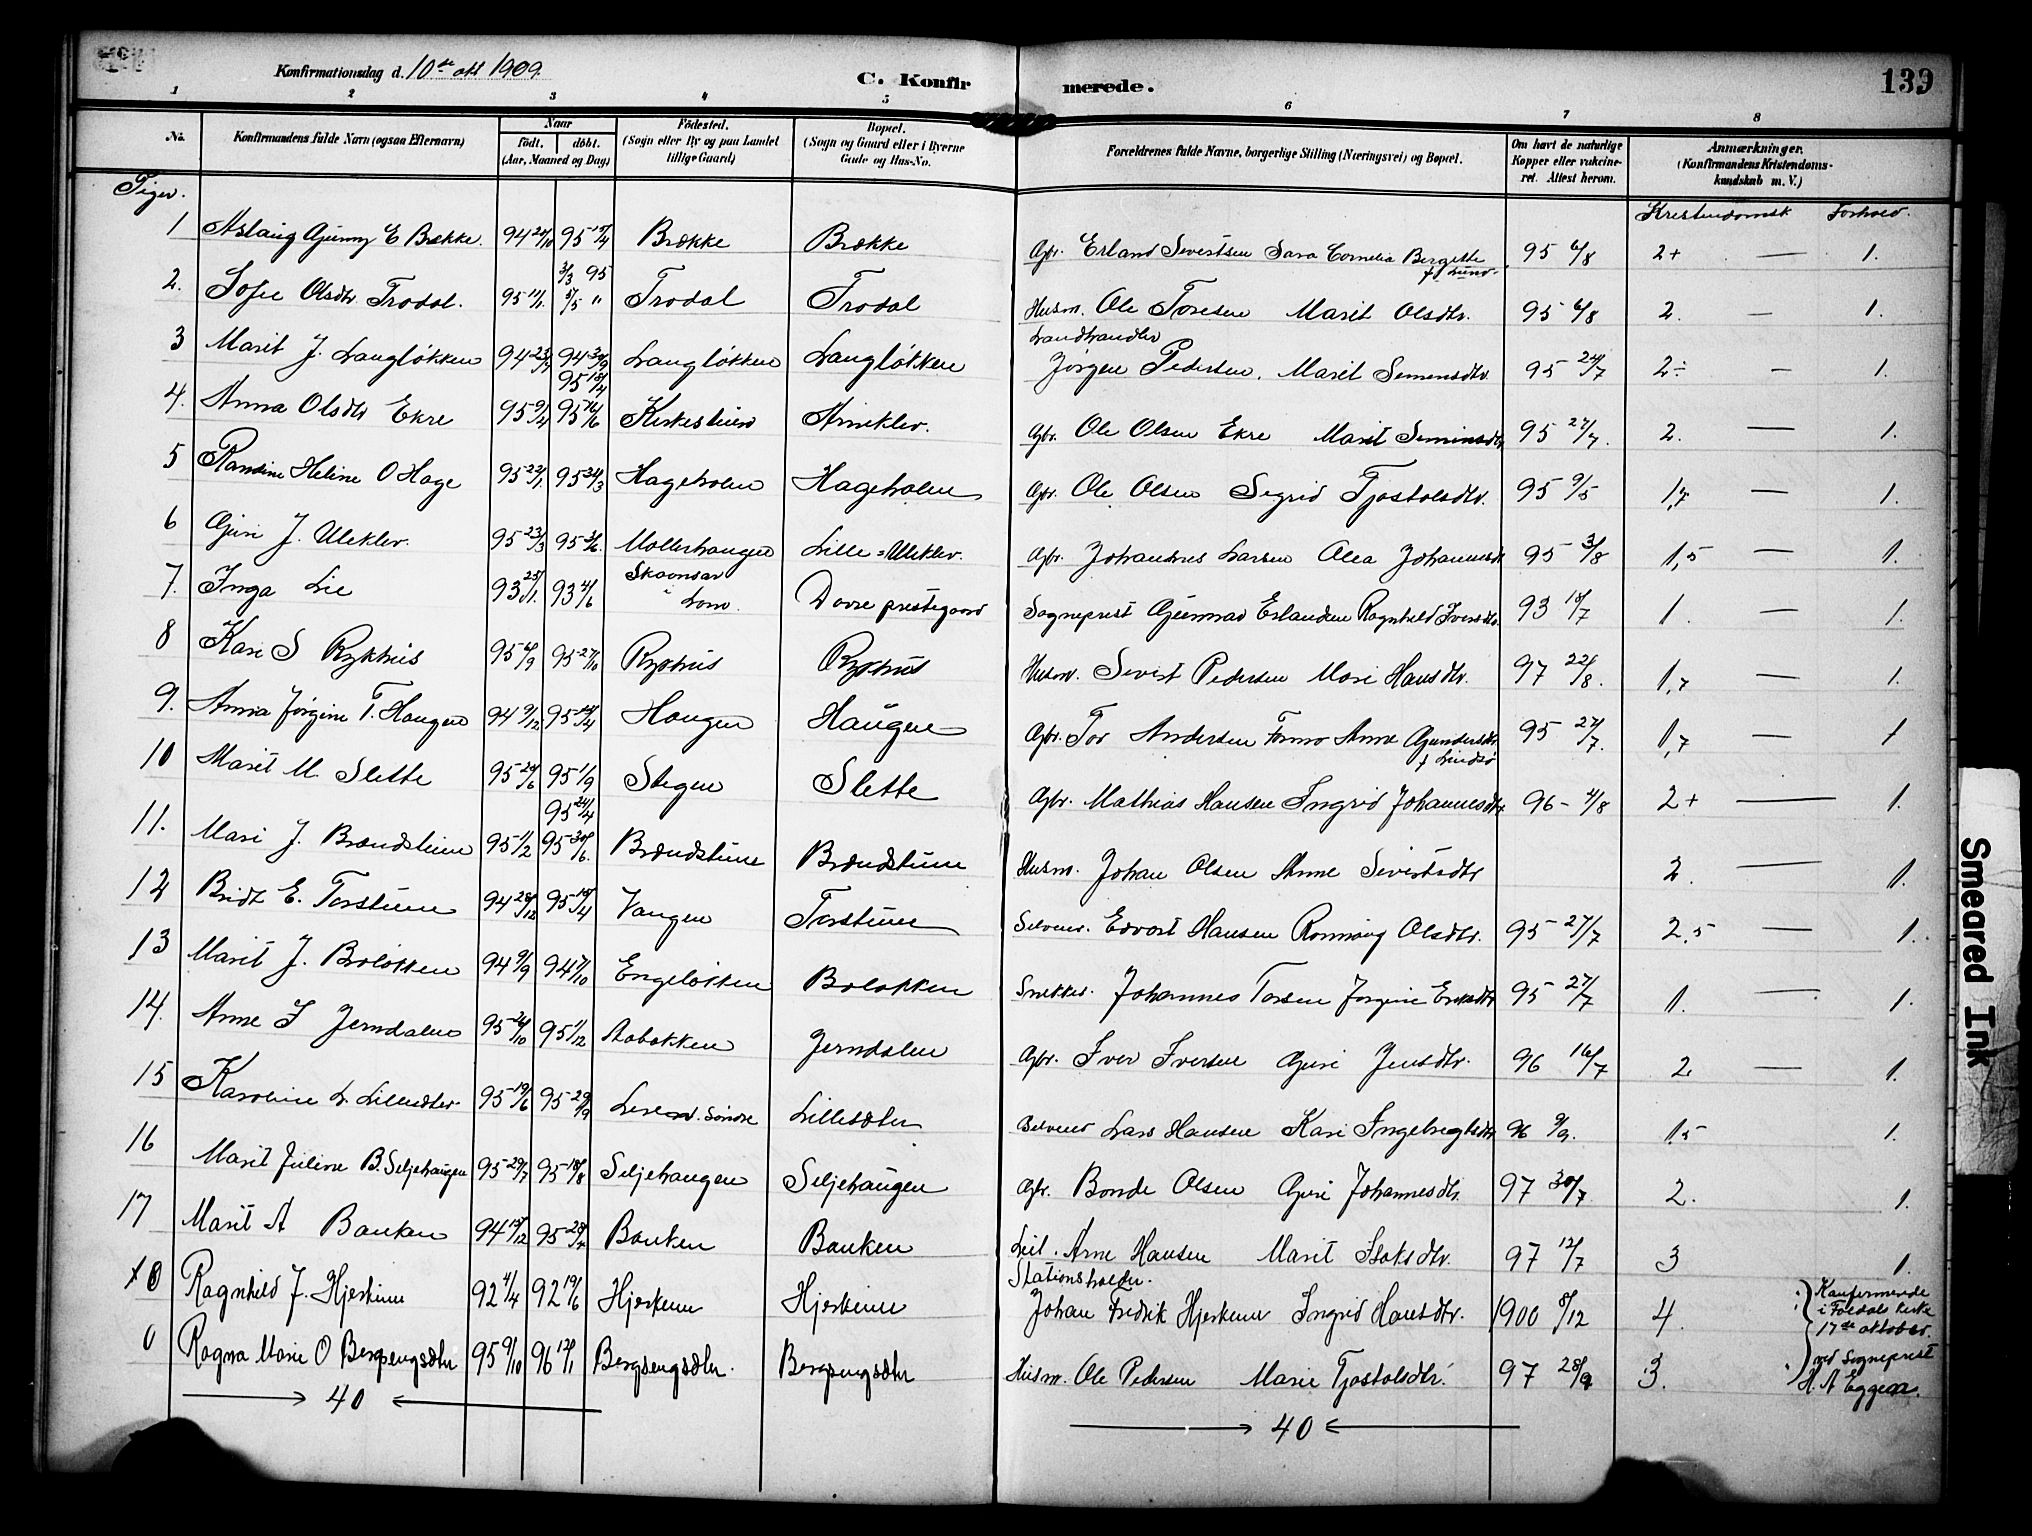 Konfirmationsdag d. 10de okt 1909.
C. Konfirmerede.
139
1 2 3 4 5 6 7 8
No. Konfirmandens fulde Navn (ogsaa Efternavn) Naar født. døbt. (Aar, Maaned og Dag) Fødested. (Sogn eller By og paa Landet tillige Gaard) Bopæl. (Sogn og Gaard eller i Byerne Gade og Hus-No. Forældrenes fulde Navne, borgerlige Stilling (Næringsvei) og Bopæl. Om havt de naturlige Kopper eller vakcineret. Attest herom. Anmærkninger. (Konfirmandens Kristendomskundskab m. V.)
Piger. Kristendomsk Forhold.
1 Aslaug Gunny E Brække. 94 20/10 95 15/4 Brække Brække Gbr. Erland Sivertsen Sara Cornelia Bergitte f. Lund. 95 6/8 2+ — 1.
2. Sofie Olsdtr Trodal. 95 11/1 3/3 95 5/5 " Trodal Trodal Husm. Ole Toresen Marit Olsdtr. 95 6/8 2. — 1.
3 Marit J. Laugløkken 94 23/7 94 30/9 Laugløkken Laugløkken Landhandler Jørgen Pedersen. Marit Simensdtr 95 24/7 2÷ — 1.
4. Anna Olsdtr Ekre 95 9/4 95 18/4 95 16/6 Kirkestuen Arneklev. Gbr. Ole Olsen Ekre Marit Simensdtr 95 27/7. 2. — 1.
5 Randine Heline O Hage 95 22/1. 95 31/3 Hageholen Hageholen Gbr. Ole Olsen Sigrid Tjostolsdtr. 95 9/5 1,7 — 1.
6 Guri J. Uleklev. 95 23/3 95 3/6. Mollerhaugen Lille=Uleklev. Gbr. Johannes Larsen Olea Johannesdt 95 3/8 1,5 — 1.
7. Inga Lie 93 25/1. 93 4/6 Lom. Dovre prestegaard Sogneprest Gunnar Erlandsen Ragnhild Iversdtr. 93 18/7 1. — 1.
8 Kari S Rykhus 95 6/9 95 27/10 Rykhus Rykhus Husm. Sivert Pedersen Mari Hansdtr. 97 22/8. 1,7 — 1.
9. Anna Jørgine T. Haugen 94 9/12 95 15/4 Haugen Haugen Gbr. Tor Andersen Formo Anne Gundersdtr. f. Lindsø 95 27/7. 1,7 — 1
10 Marit M. Slette 95 24/6 95 1/9 Stegen Slette Gbr. Mathias Hansen Ingrid Johannesdtr 96 - 4/8 2+ — 1.
11. Mari J. Brændstuen 95 1/2 95 24/4 95 30/6. Brændstuen Brændstuen Husm. Johan Olsen Anne Sivertsdtr 2. — 1.
12 Bridt E. Torstuen 94 28/12 95 15/4 Vangen Torstuen Selveier. Edvart Hansen Rønnaug Olsdtr. 95 27/7 2,5 — 1.
13 Marit J. Broløkken 94 9/9 94 7/10 Engeløkken Boløkken Snekker. Johannes Torsen Jørgine Eriksdtr 95 27/7 1. — 1.
14. Anne I Jerndalen 95 26/10 95 1/12 Jerndalen Gbr. Iver Iversen Guri Jensdtr. 96 16/7 2. — 1.
15 Karoline L. Lillesæter. 95 19/6 95 29/9 Søndre Lillesæter Selveier Lars Hansen Kari Ingebrigtsdtr 96 9/9. 1,5 — 1.
16 Marit Juline B. Seljehaugen 95 29/7 95 18/8 Seljehaugen Seljehaugen Gbr. Bonde Olsen Guri Johannesdtr. 97 30/7 2. 1.
17 Marit A Bauken 94 15/12 95 28/4 Bauken Bauken Leil. Arne Hansen Marit Isaksdtr. 97 12/7 3 1.
0 Ragnhild J. Hjerkinn 92 4/4 92 19/6 Hjerkinn Hjerkinn Stationsholder. Johan Fredrik Hjerkinn Ingrid Hansdtr. 1900 8/12 4.
0 Ragna Marie O Bergsengsæter 95 9/10 96 12/1 Bergsengsæter. Bergsengsæter Husm. Ole Pedersen Marie Tjostolsdtr. 97 28/9 3.
Konfirmerede
i Foldals kirke
17de oktober.
ved Sogneprest
H. A Eggen.
40 40
Smeared Ink